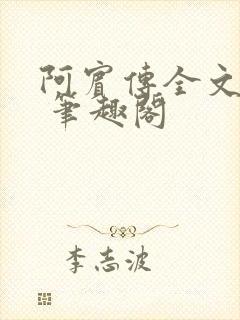 阿賓傳全文
筆趣閣
李志波